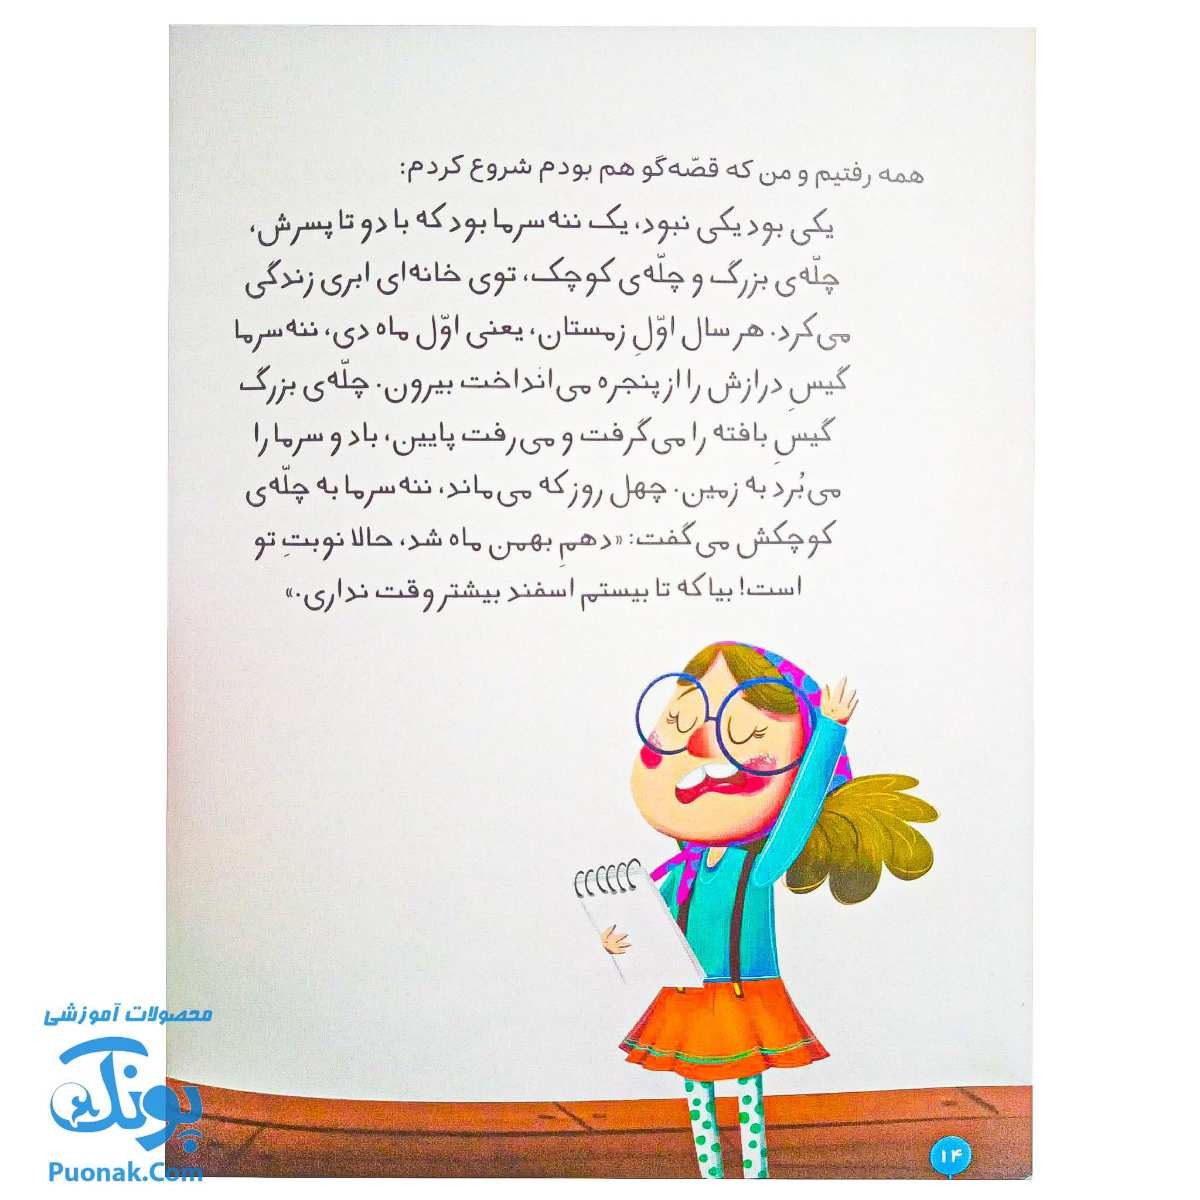 همه رفتیم و من که قصّه‌گو هم بودم شروع کردم:
یکی بود یکی نبود، یک ننه‌سرما بود که با دو تا پسرش،
چلّه‌ی بزرگ و چلّه‌ی کوچک، توی خانه‌ای ابری زندگی
می‌کرد. هر سال اوّلِ زمستان، یعنی اوّل ماه دی، ننه‌سرما
گیسِ درازش را از پنجره می‌انداخت بیرون. چلّه‌ی بزرگ
گیسِ بافته را می‌گرفت و می‌رفت پایین، باد و سرما را
می‌بُرد به زمین. چهل روز که می‌ماند، ننه‌سرما به چلّه‌ی
کوچکش می‌گفت: «دهمِ بهمن ماه شد، حالا نوبتِ تو
است! بیا که تا بیستم اسفند بیشتر وقت نداری.»
محصولات آموزشی
پونک
Puonak.Com
۱۴